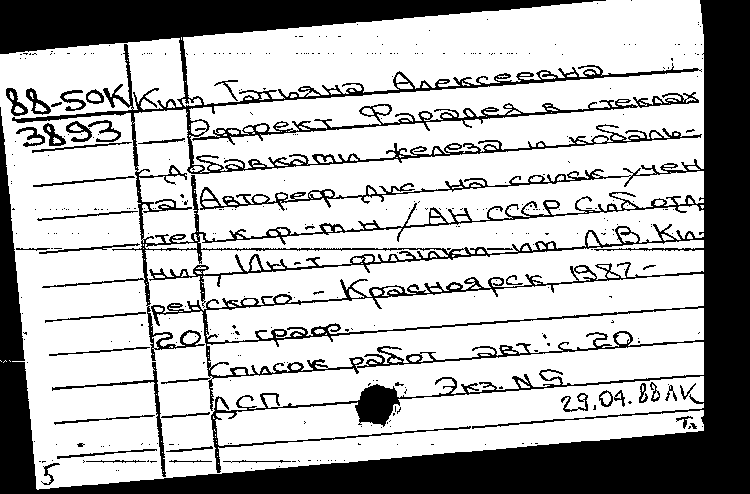 88-50К Ким, Татьяна Алексеевна.
3893 Эффект Фарадея в стеклах
с добавками железа и кобаль-
та: Автореф. дис. на соиск учен
степ. к.ф.-м.н / АН СССР Сиб отде
ние, Ин-т физики им Л.В. Ки-
ренского. - Красноярск, 1987. -
20 с.: граф.
Список работ авт.: с. 20.
ДСП. Экз. N 5.
29.04.88 ЛК
5